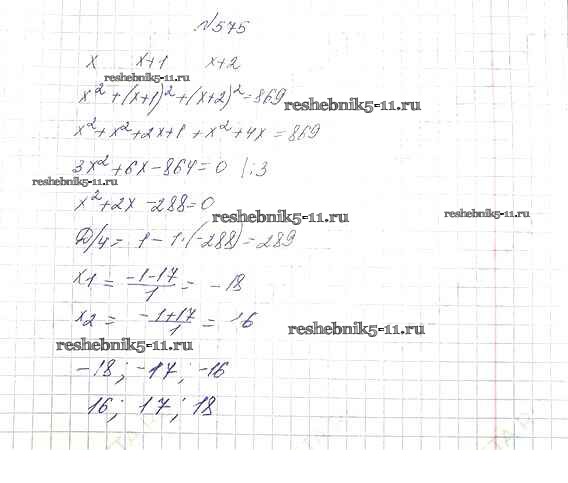 №575
x x+1 x+2
reshebnik5-11.ru
x²+(x+1)²+(x+2)²=869
reshebnik5-11.ru
x²+x²+2x+1+x²+4x=869
3x²+6x-864=0 |:3
reshebnik5-11.ru
x²+2x-288=0
reshebnik5-11.ru
reshebnik5-11.ru
D/4= 1-1·(-288)=289
x1 = (-1-17)/1 = -18
x2 = (-1+17)/1 = 16
reshebnik5-11.ru
reshebnik5-11.ru
-18; -17; -16
16; 17; 18